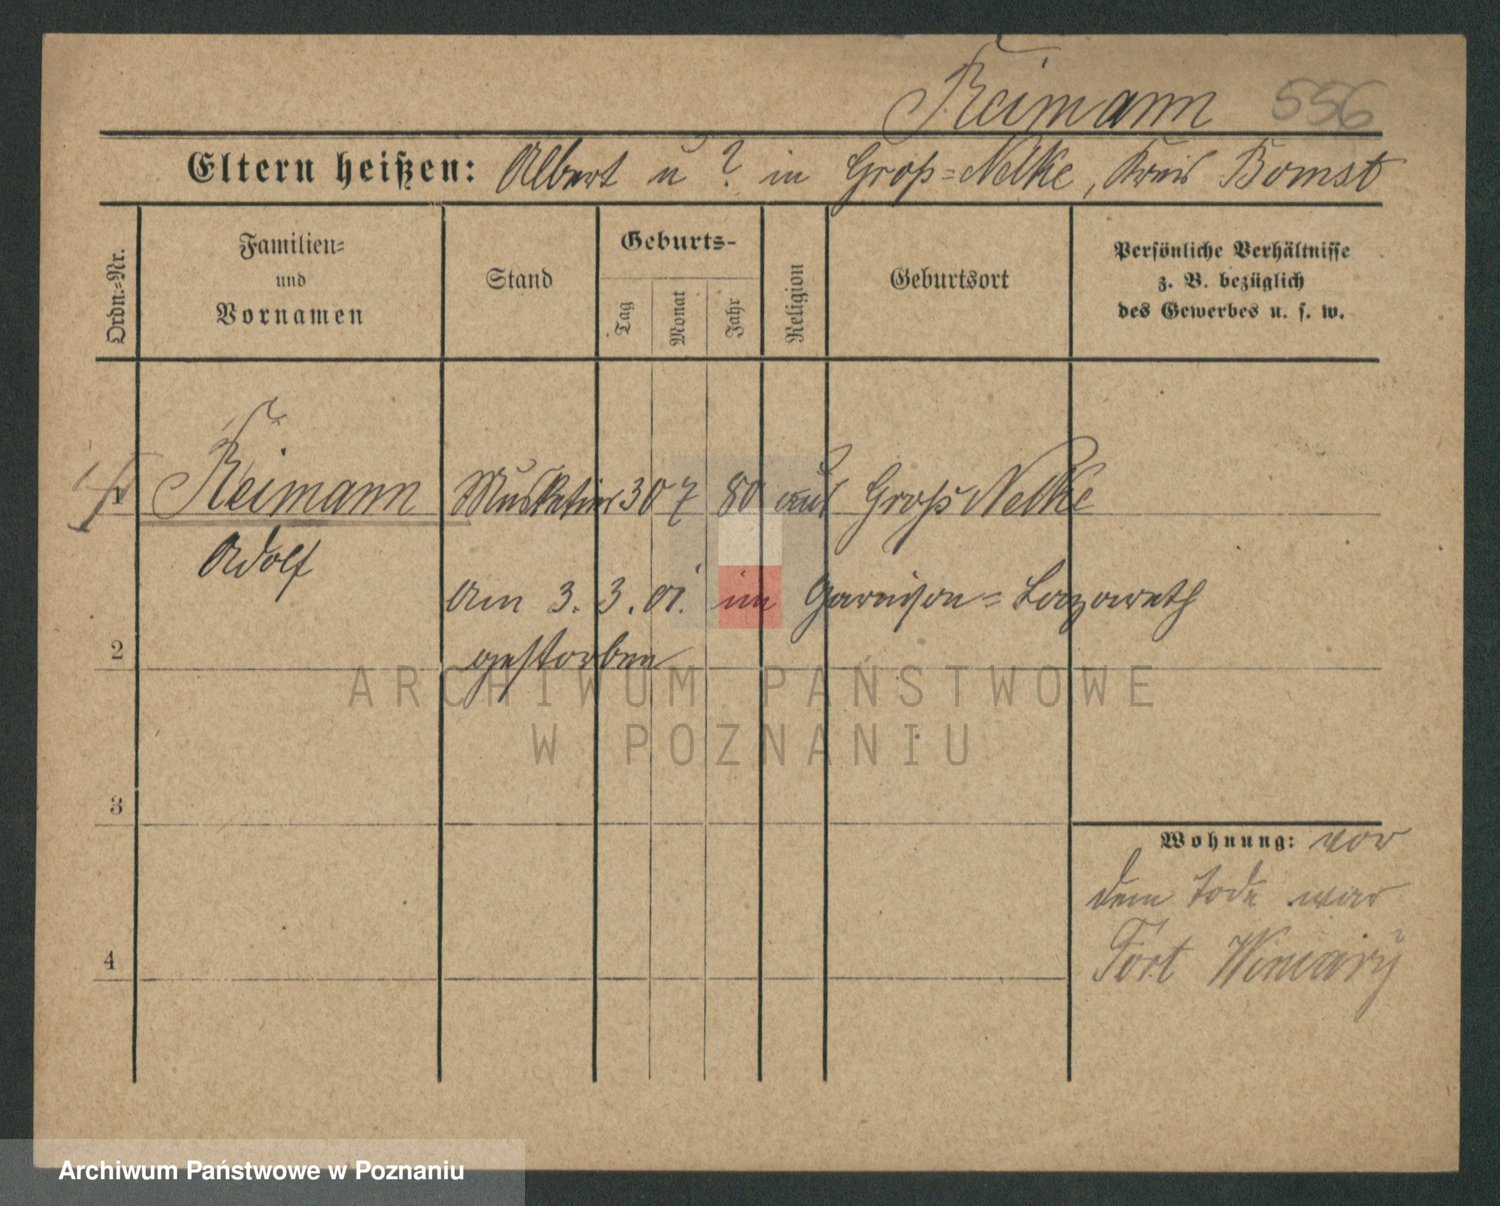 Reimann 556
Eltern heißen: Albert u ? in Groß=Nelke, Kreis Bomst
Ordn.=Nr.
Familien=
und
Vornamen
Stand
Geburts-
Tag
Monat
Jahr
Religion
Geburtsort
Persönliche Verhältnisse
z. B. bezüglich
des Gewerbes u. s. w.
1 Reimann Musketier 30 7 80 aus Groß Nelke
Adolf
Am 3. 3. 01. im Garnison=Lazareth
2 gestorben
ARCHIWUM PAŃSTWOWE
W POZNANIU
3
Wohnung: vor
dem Tode war
4 Fort Winiary
Archiwum Państwowe w Poznaniu